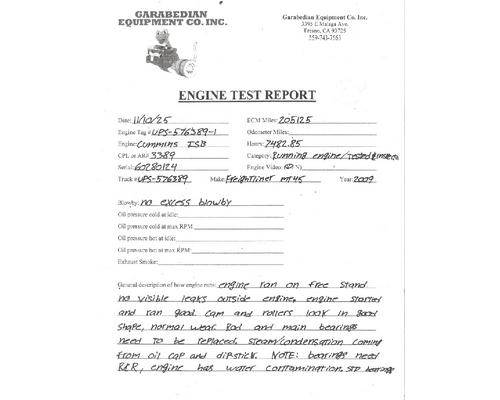 GARABEDIAN
EQUIPMENT CO. INC.
Garabedian Equipment Co. Inc.
3395 E Malaga Ave.
Fresno, CA 93725
559-743-3563
ENGINE TEST REPORT
Date: 11/10/25 ECM Miles: 205125
Engine Tag # UPS-576389-1 Odometer Miles:
Engine: Cummins ISB Hours: 7482.85
CPL or AR# 3389 Category: Running engine/tested &
Serial: 60280124 Engine Video: (Y/N)
Truck # UPS-576389 Make: Freightliner MT45 Year: 2009
Blowby: no excess blowby
Oil pressure cold at idle:
Oil pressure cold at max RPM:
Oil pressure hot at idle:
Oil pressure hot at max RPM:
Exhaust Smoke:
General description of how engine runs: engine ran on free stand
no visible leaks outside engine. engine started
and ran good. Cam and rollers look in good
shape, normal wear. Rod and main bearings
need to be replaced. steam/condensation coming
from oil cap and dipstick. NOTE: bearings need
R&R, engine has water contamination. STD bearings